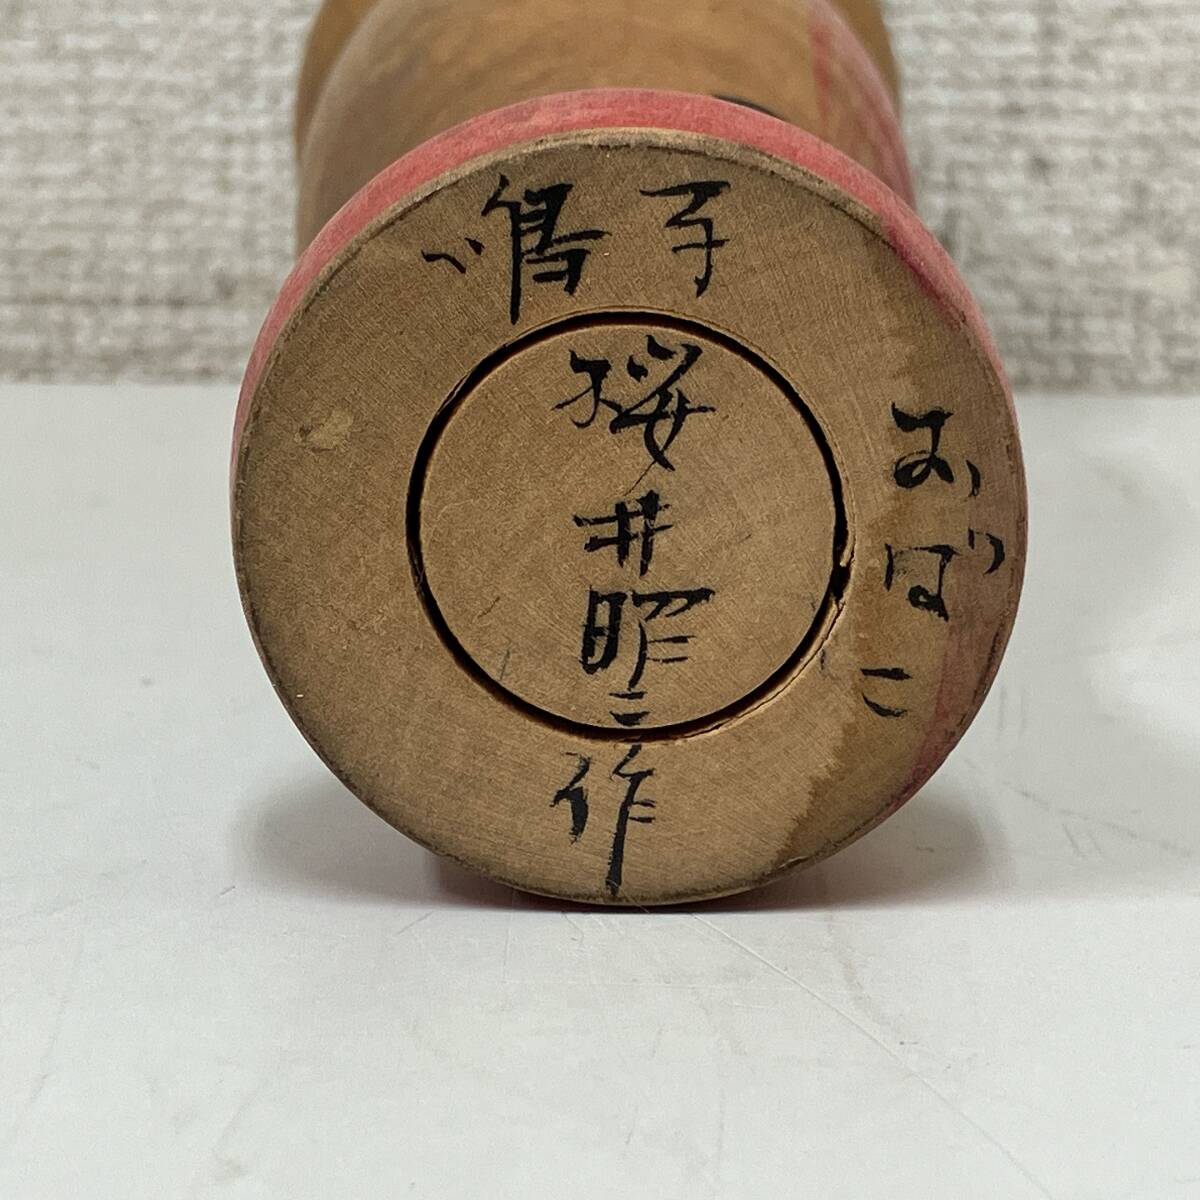 鳴子
おぼこ
桜井昭二作